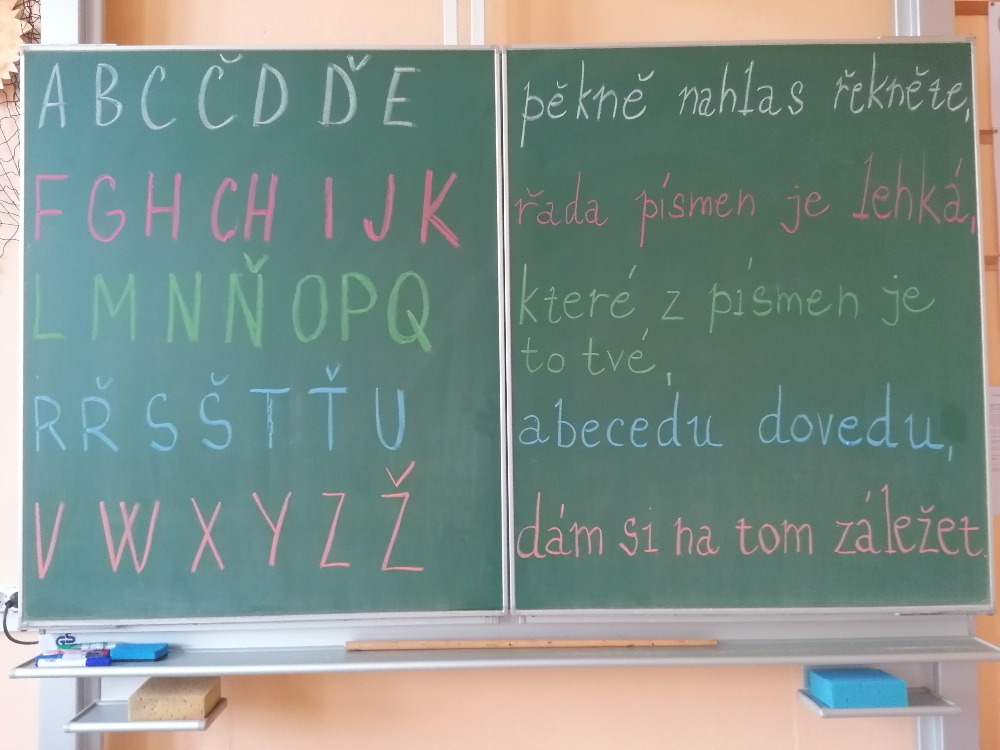 A B C Č D Ď E
F G H CH I J K
L M N Ň O P Q
R Ř S Š T Ť U
V W X Y Z Ž
pěkně nahlas řekněte,
řada písmen je lehká,
které z písmen je
to tvé,
abecedu dovedu,
dám si na tom záležet.
GS